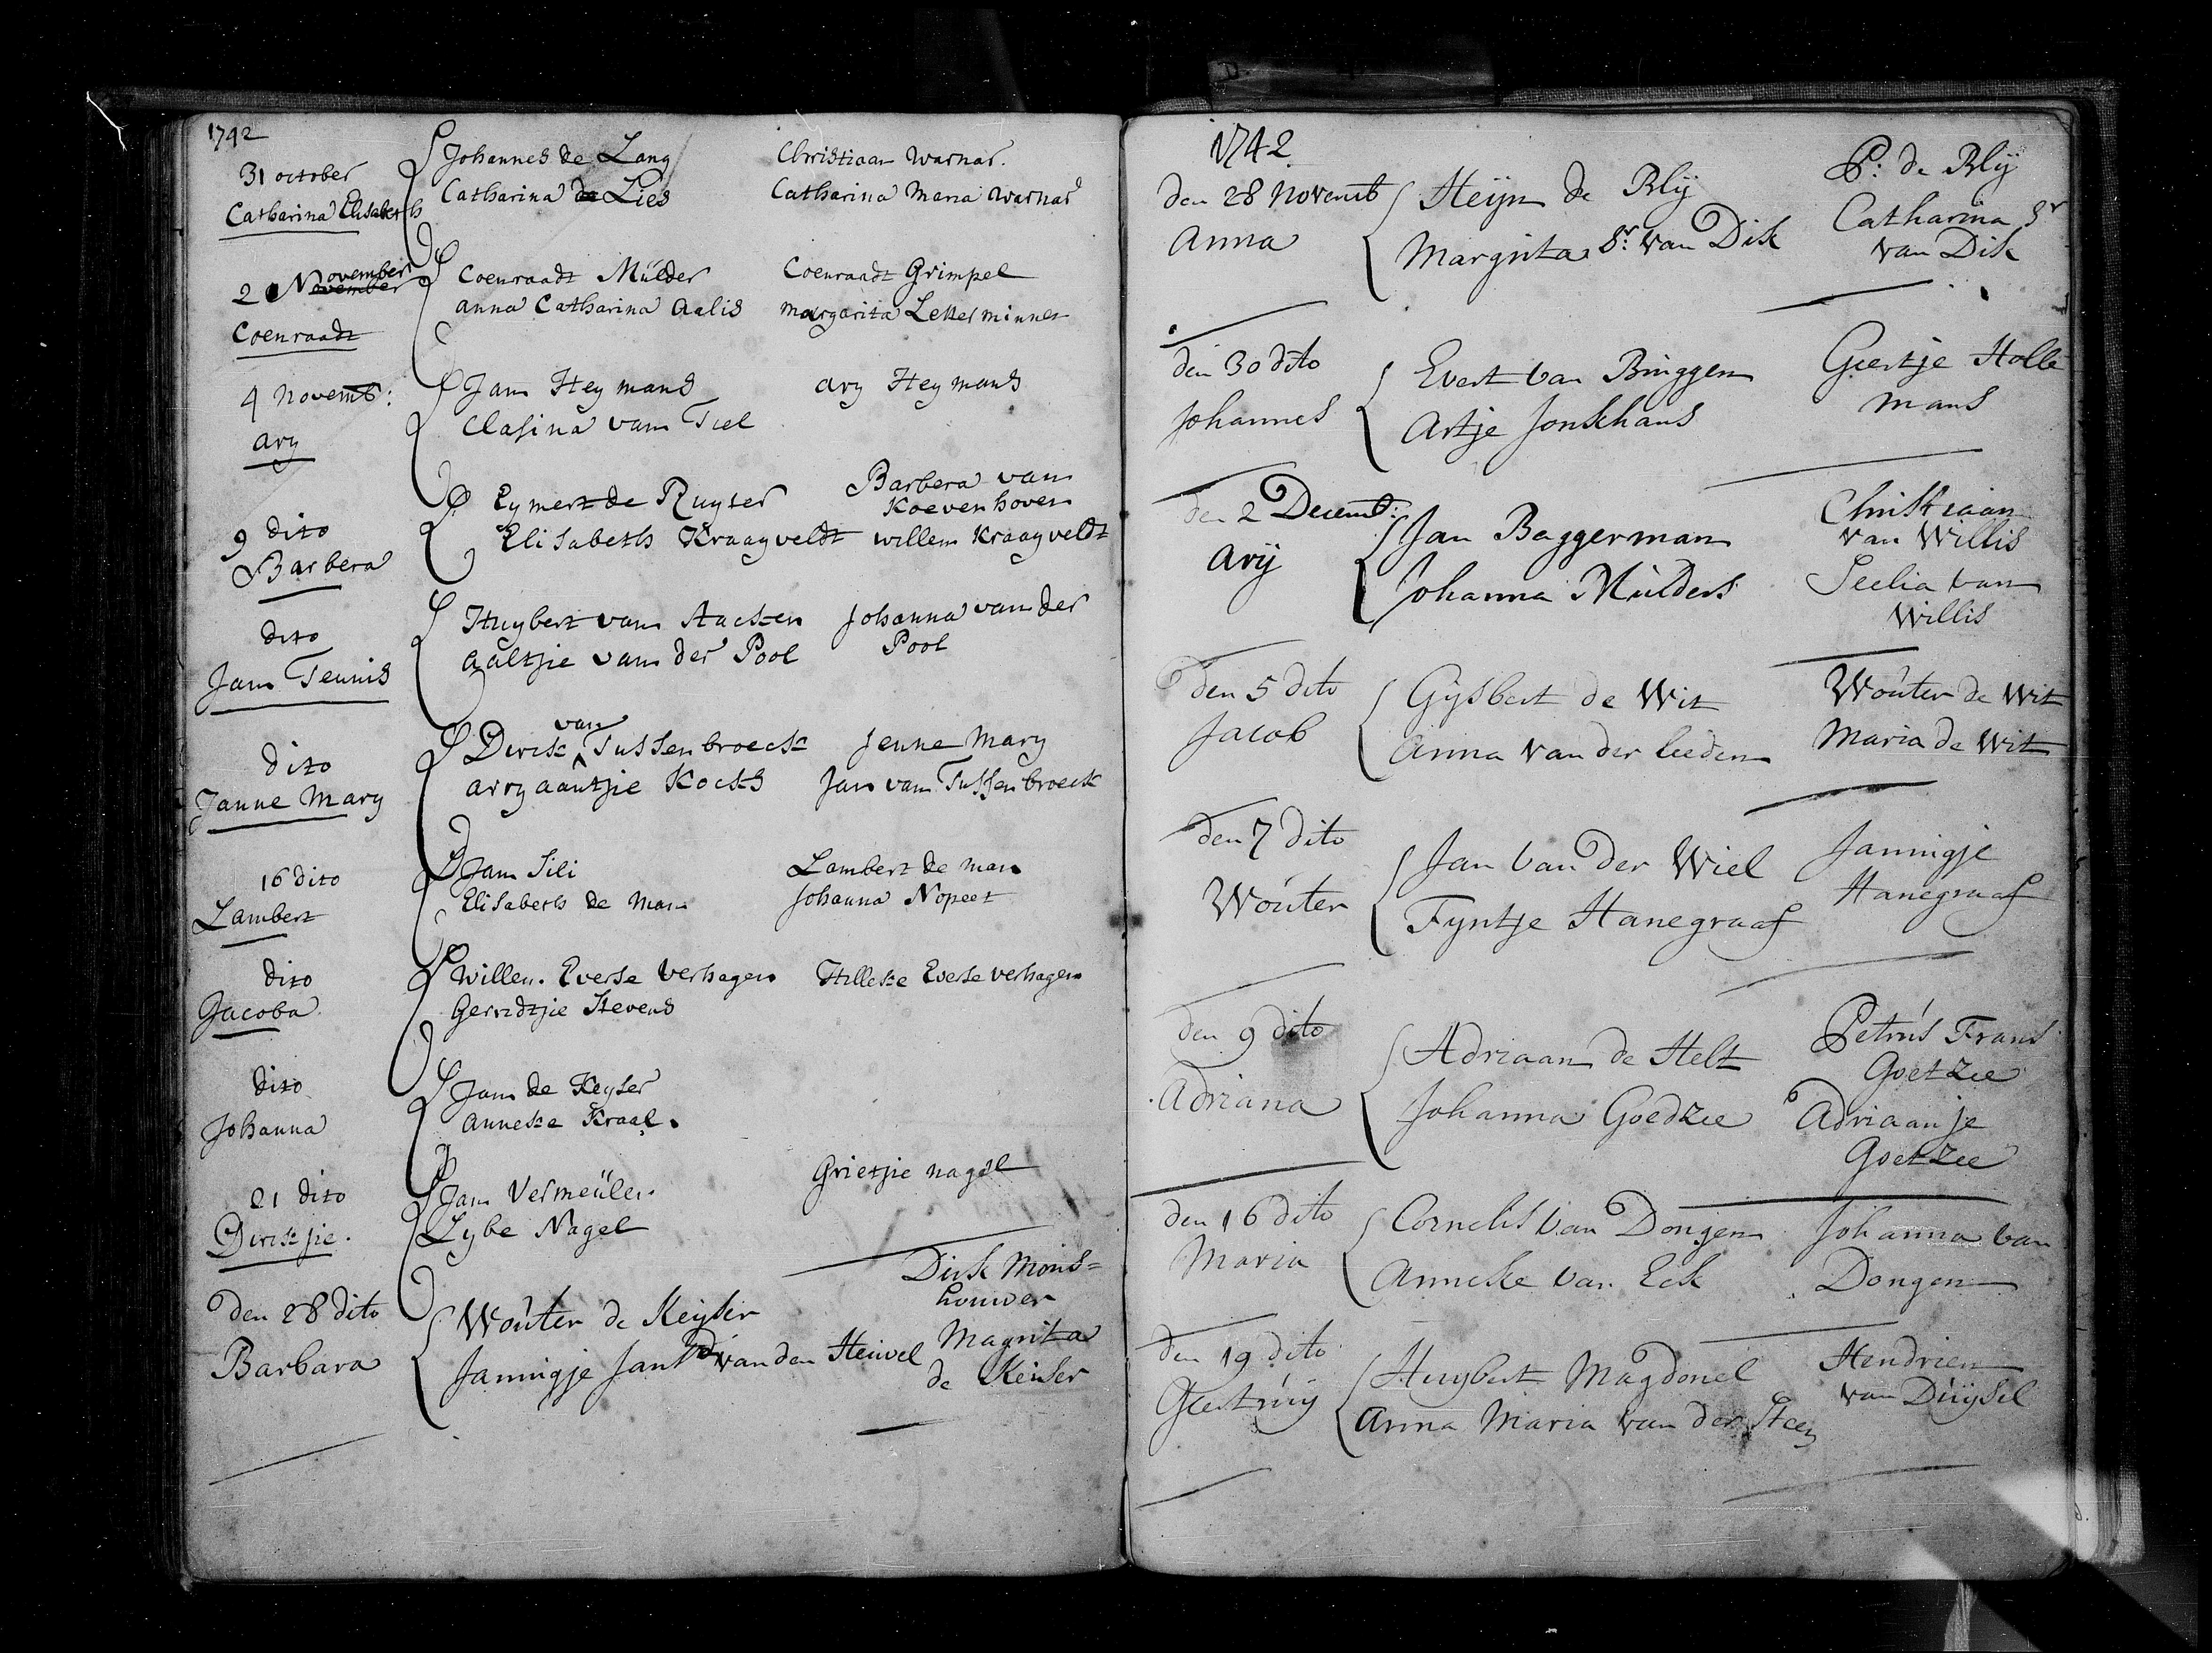 1742
31 october
Catharina Elisabeth
Johannes de Lang
Catharina de Lies
Christiaan Warnar.
Catharina Maria Warnar
2 November
November
Coenraadt
Coenraadt Mulder
anna Catharina Aalis
Coenraadt Grimpel
margarita
4 Novemb:
ary
Jan Heymans
Clasina van Tiel
ary Heymans
9 dito
Barbera
Eymert de Ruyter
Elisabeth Kraayveldt
Barbera van
Koevenhoven
willem Kraayveldt
dito
Jan Teunis
Huybert van
aaltjie van der Pool
Johanna van der
Pool
dito
Janne Mary
van
Dirck Tussenbroeck
aryaantjie Kocks
Jenne Mary
Jan van Tussenbroeck
16 dito
Lambert
Jan Sili
Elisabeth de Man
Lambert de man
Johanna Nopeet
dito
Jacoba
Willem Everse Verhagen
Gerridtjie Stevens
Hilleke Everse verhagen
dito
Johanna
Jan de Keyser
Anneke Kraal.
21 dito
Dirckjie.
Jan Vermeulen
Lybe Nagel
Grietjie nagel
den 28 dito
Barbara
Wouter de Keyser
Jannigje Jans van den Heuvel
Dirk Mons=
houwer
Magrita
de Keiser
1742
den 28 Novemb
Anna
Heijn de Blij
Margrita Sr. van Dik
P: de Blij
Catharina Sr
van Dik
den 30 dito
Johannes
Evert van Binggen
Artje Jonkhans
Geertje Holle
mans
den 2 Decemb:
Arij
Jan Baggerman
Johanna Mulders
Christiaan
van Willis
Seelia van
Willis
den 5 dito
Jacob
Gysbert de Wit
Anna van der leeden
Wouter de Wit
Maria de Wit
den 7 dito
Wouter
Jan van der Wiel
Fyntje Hanegraaf
Jannigje
Hanegraaf
den 9 dito
Adriana
Adriaan de Helt
Johanna Goedzee
Petrus Frans
Goetzee
Adriaanje
Goetzee
den 16 dito
Maria
Cornelis van Dongen
Anneke van Eck
Johanna van
Dongen
den 19 dito
Geertruy
Huybert Magdonel
Anna Maria van der Steen
Hendrien
van Duysel